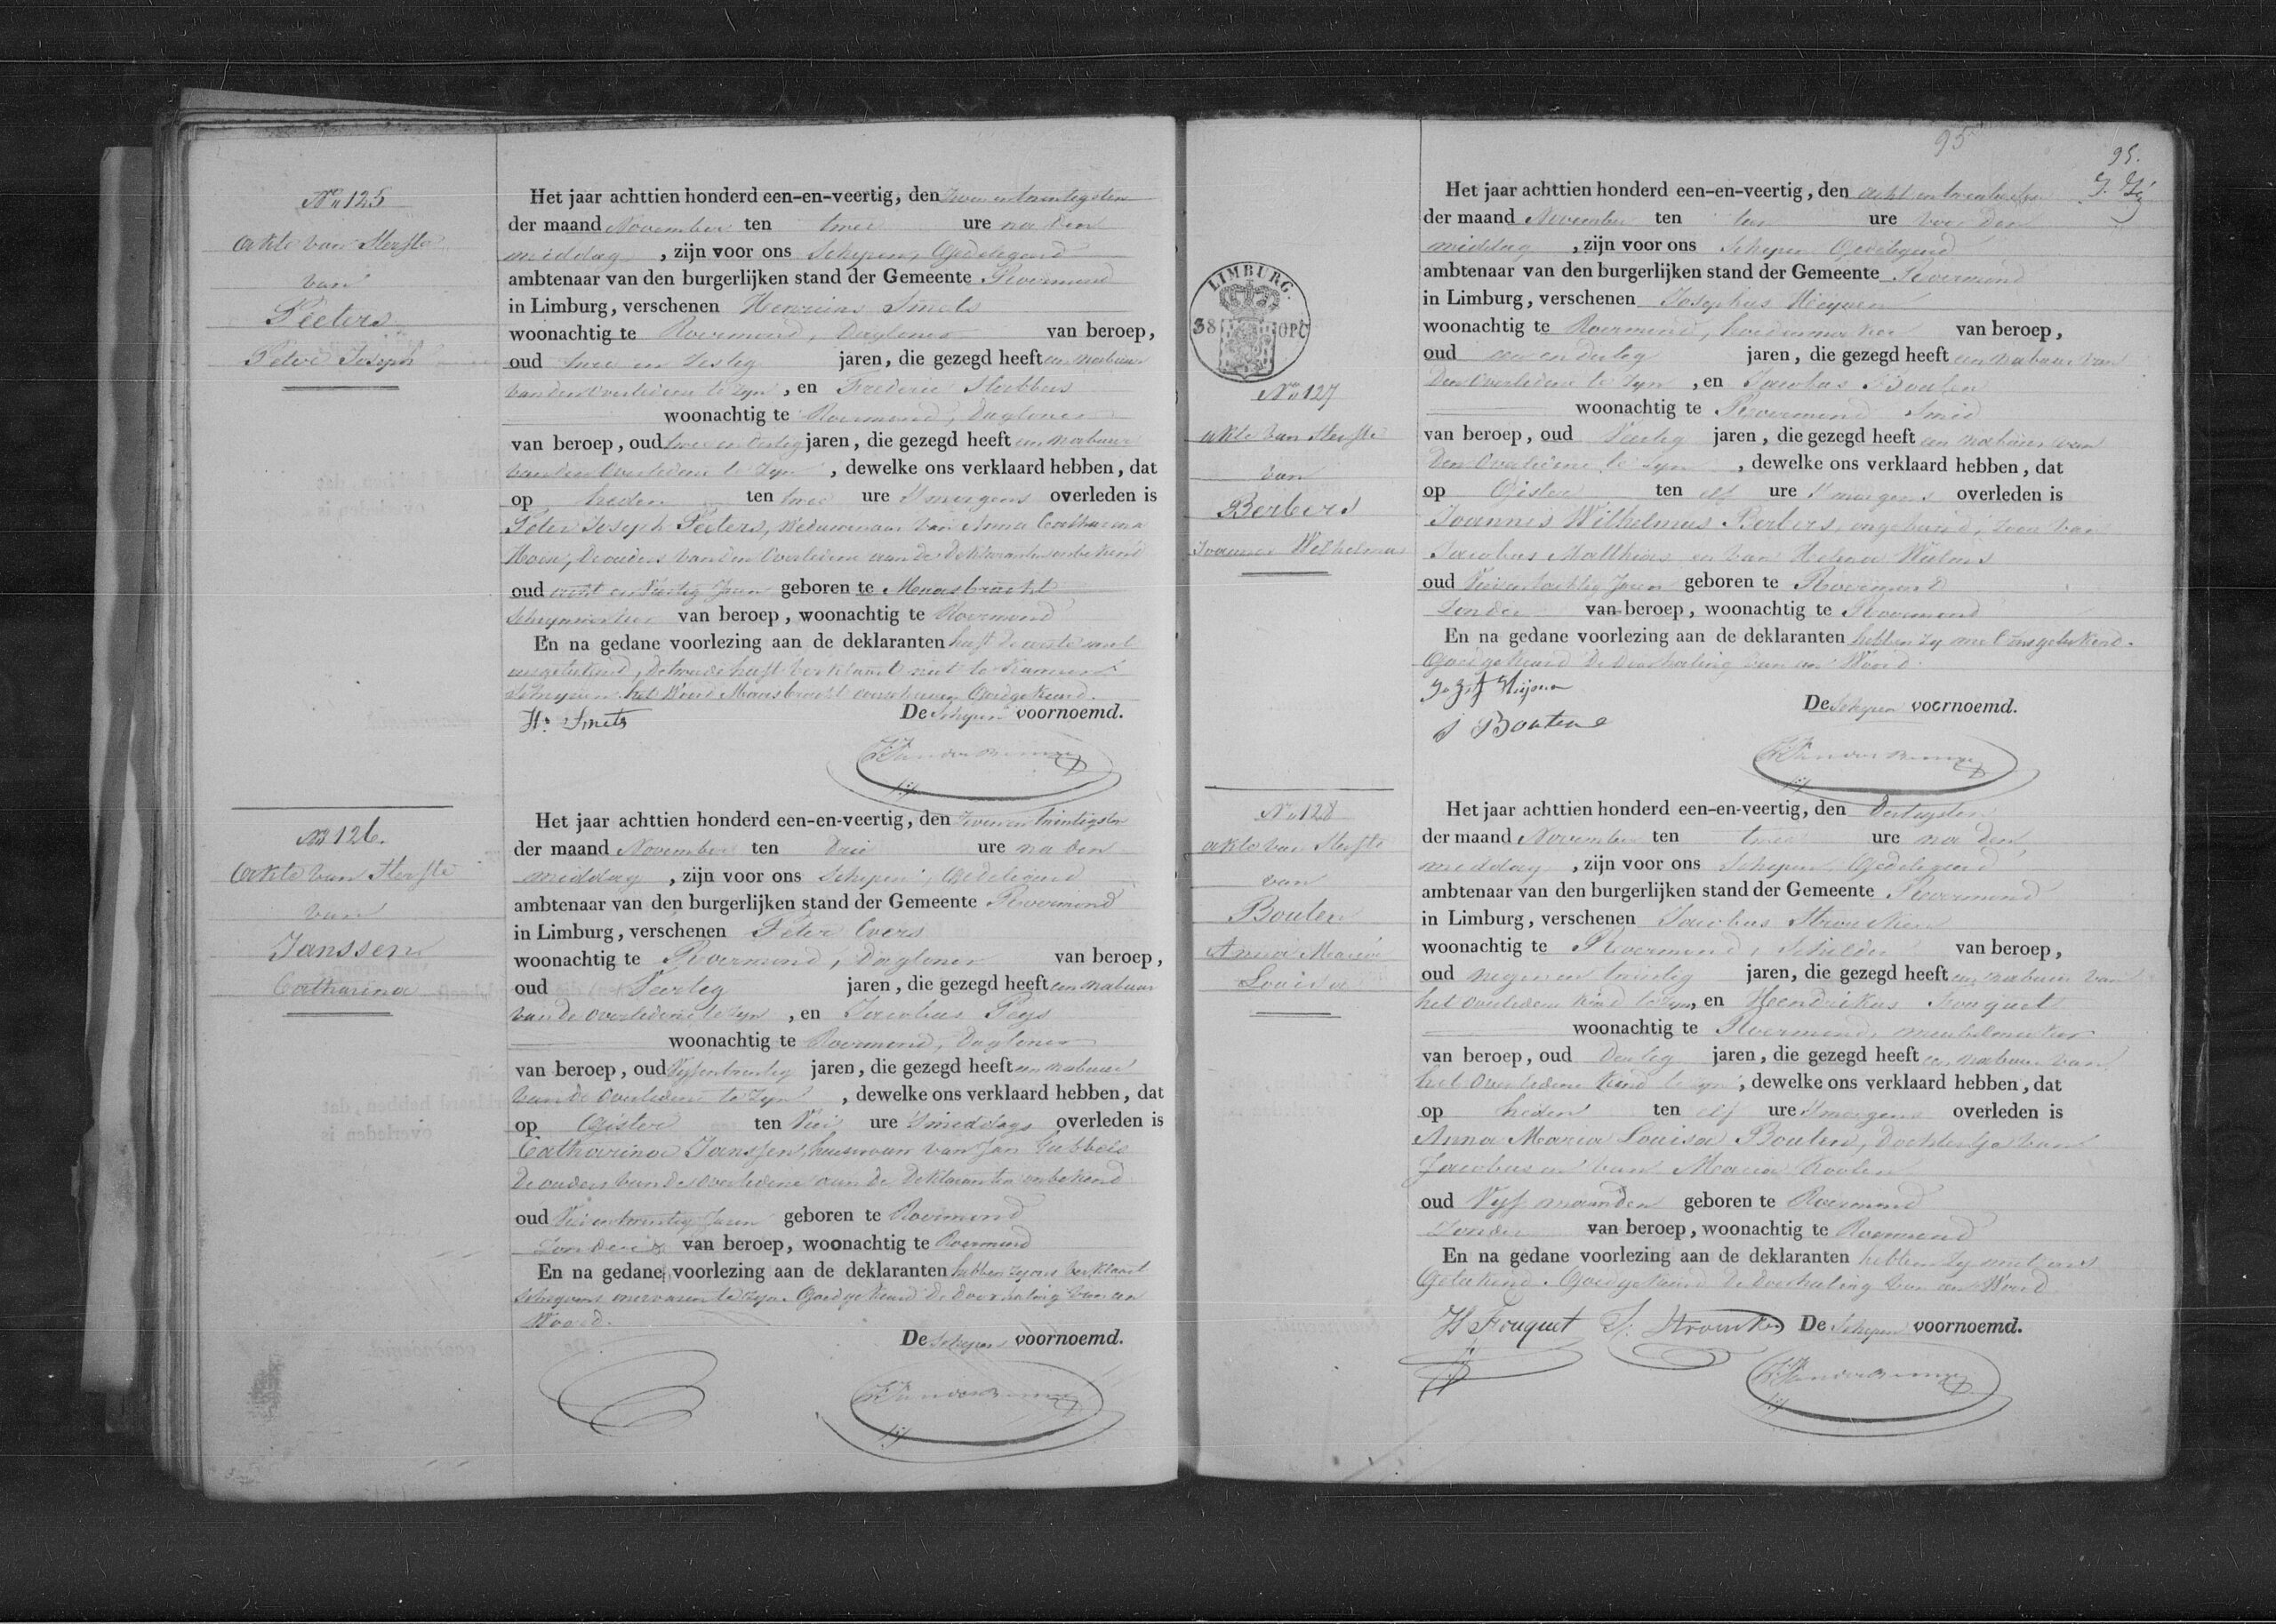 No 125
Akte van Sterfte
van
Peeters
Peter Joseph
Het jaar achttien honderd een-en-veertig, den
der maand November ten twee ure na den
middag, zijn voor ons Schepen, Gedelegeerd
ambtenaar van den burgerlijken stand der Gemeente Roermond
in Limburg, verschenen Henricus Smets
woonachtig te Roermond, Dagloner van beroep,
oud twee en Zestig jaren, die gezegd heeft een nabuur
van den overledene te zyn, en Frederic
woonachtig te Roermond, Dagloner
van beroep, oud twee en dertig jaren, die gezegd heeft een nabuur
van den Overledene te Zyn, dewelke ons verklaard hebben, dat
op heden ten twee ure 's morgens overleden is
Peter Joseph Peeters, Weduwenaar van Anna Catharina
de ouders van den Overledene aan de deklaranten onbekend
oud jaren geboren te Maasbracht
van beroep, woonachtig te Roermond
En na gedane voorlezing aan de deklaranten heeft de eerste met
ons getekend, de tweede heeft verklaard niet te kunnen
schryven. het Woord Maasbracht Goedgekeurd.
Hs Smets
De Schepen voornoemd.
No 126.
Akte van Sterfte
van
Janssen
Catharina
Het jaar achttien honderd een-en-veertig, den Zeven en twintigsten
der maand November ten Drie ure na den
middag, zijn voor ons Schepen, Gedelegeerd
ambtenaar van den burgerlijken stand der Gemeente Roermond
in Limburg, verschenen Peter Evers
woonachtig te Roermond, Dagloner van beroep,
oud Veertig jaren, die gezegd heeft een nabuur
van de overledene te zyn, en Jacobus Peys
woonachtig te Roermond, Dagloner
van beroep, oud jaren, die gezegd heeft een nabuur
van de Overledene te Zyn, dewelke ons verklaard hebben, dat
op Gister ten Vier ure 's middags overleden is
Catharina Janssen, huisvrouw van Jan Gubbels
De ouders van de overledene aan de Deklaranten onbekend
oud jaren geboren te Roermond
Zonder van beroep, woonachtig te Roermond
En na gedane voorlezing aan de deklaranten hebben zy ons verklaard
schryvens onervaren te zyn. Goedgekeurd de Doorhaling van een
Woord.
De Schepen voornoemd.
95
95.
LIMBURG.
38 OPC
No 127
Akte van Sterfte
van
Berbers
Joannes Wilhelmus
Het jaar achttien honderd een-en-veertig, den acht en twintigsten
der maand November ten tien ure voor den
middag, zijn voor ons Schepen Gedelegeerd
ambtenaar van den burgerlijken stand der Gemeente Roermond
in Limburg, verschenen Josephus Heijnen
woonachtig te Roermond, hoedenmaker van beroep,
oud en dertig jaren, die gezegd heeft een nabuur van
Den Overledene te zyn, en Jacobus Bouten
woonachtig te Roermond Smid
van beroep, oud Veertig jaren, die gezegd heeft een nabuur van
Den Overledene te zyn, dewelke ons verklaard hebben, dat
op Gister ten elf ure 's morgens overleden is
Joannes Wilhelmus Berbers, ongehuwd, zoon van
Jacobus Matthias en van Helena Wielms
oud jaren geboren te Roermond
Zonder van beroep, woonachtig te Roermond
En na gedane voorlezing aan de deklaranten hebben zy met ons getekend.
Goedgekeurd De Doorhaling van een Woord.
Jozef Heijnen
J Boutene
De Schepen voornoemd.
No 128
Akte van Sterfte
van
Bouten
Anna Maria
Louisa
Het jaar achttien honderd een-en-veertig, den Dertigsten
der maand November ten twee ure na den
middag, zijn voor ons Schepen, Gedelegeerd
ambtenaar van den burgerlijken stand der Gemeente Roermond
in Limburg, verschenen Jacobus Stroucken
woonachtig te Roermond, Schilder van beroep,
oud negen en twintig jaren, die gezegd heeft een nabuur van
het overledene kind te zyn, en Hendrikus Fouquet
woonachtig te Roermond, meubelmaker
van beroep, oud Dertig jaren, die gezegd heeft een nabuur van
het Overledene Kind te zyn, dewelke ons verklaard hebben, dat
op heden ten elf ure 's morgens overleden is
Anna Maria Louisa Bouten, Dochtertje van
Jacobus en van Maria Koolen
oud Vyf maanden geboren te Roermond
Zonder van beroep, woonachtig te Roermond
En na gedane voorlezing aan de deklaranten hebben zy met ons
Getekend. Goedgekeurd De Doorhaling van een Woord
H Fouquet J. Stroucken De Schepen voornoemd.